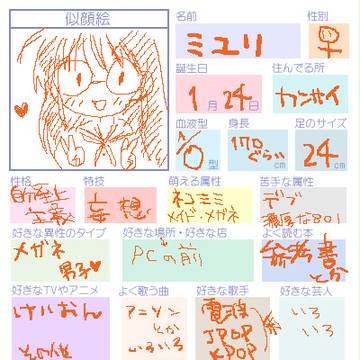 似顔絵
名前
ミユリ
性別
♀
誕生日
1月24日
住んでる所
カンサイ
血液型
O型
身長
170ぐらいcm
足のサイズ
24cm
性格
特技
妄想
萌える属性
ネコミミ
メイド・メガネ
苦手な属性
デブ
濃厚なBOY
好きな異性のタイプ
メガネ
男子♥
好きな場所・好きな店
PCの前
よく読む本
参考書
とか
好きなTVやアニメ
けいおん
その他
よく歌う曲
アニソン
とか
いろいろ
好きな歌手
電波
JPOP
KPOP
好きな芸人
いろ
いろ